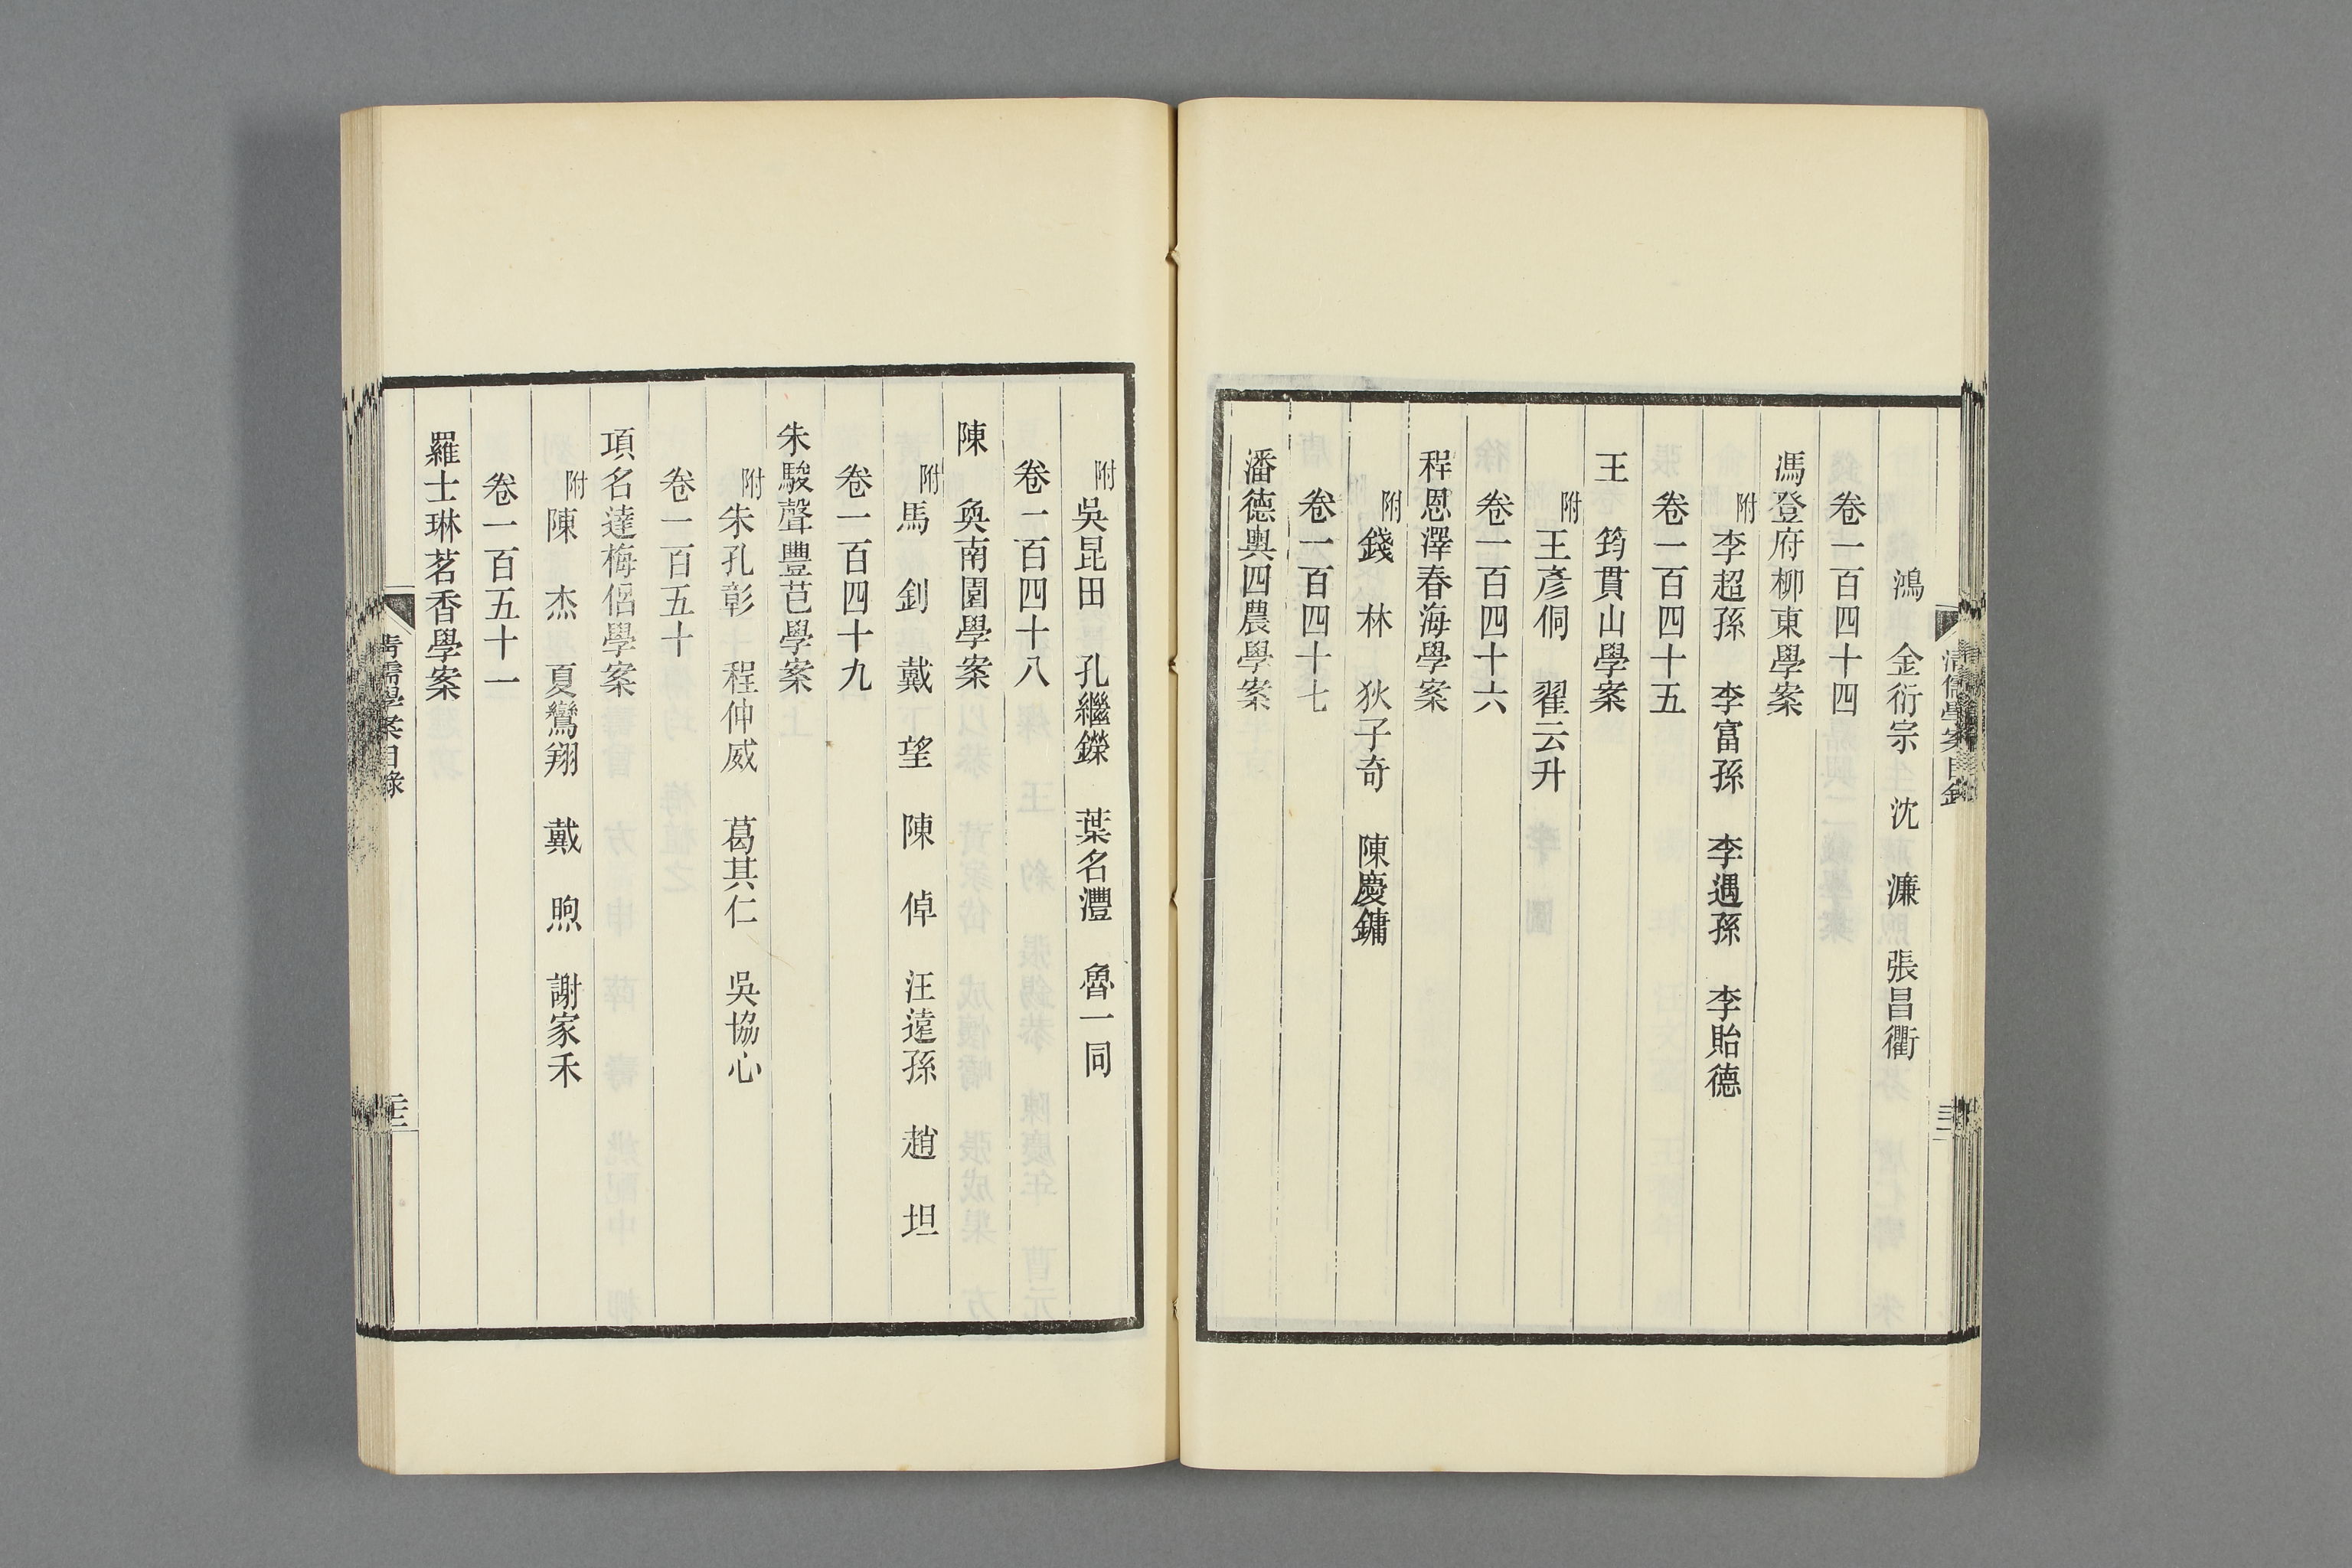 鴻　金衍宗　沈　濂　張昌衢
卷一百四十四
馮登府柳東學案
附李超孫　李富孫　李遇孫　李貽德
卷一百四十五
王　筠貫山學案
附王彥侗　翟云升
卷一百四十六
程恩澤春海學案
附錢　林　狄子奇　陳慶鏞
卷一百四十七
潘德輿四農學案
附吳昆田　孔繼鑅　葉名灃　魯一同
卷一百四十八
陳　奐南園學案
附馬　釗　戴　望　陳　倬　汪遠孫　趙　坦
卷一百四十九
朱駿聲豐芑學案
附朱孔彰　程仲威　葛其仁　吳協心
卷一百五十
項名達梅侶學案
附陳　杰　夏鸞翔　戴　煦　謝家禾
卷一百五十一
羅士琳茗香學案
清儒學案目錄